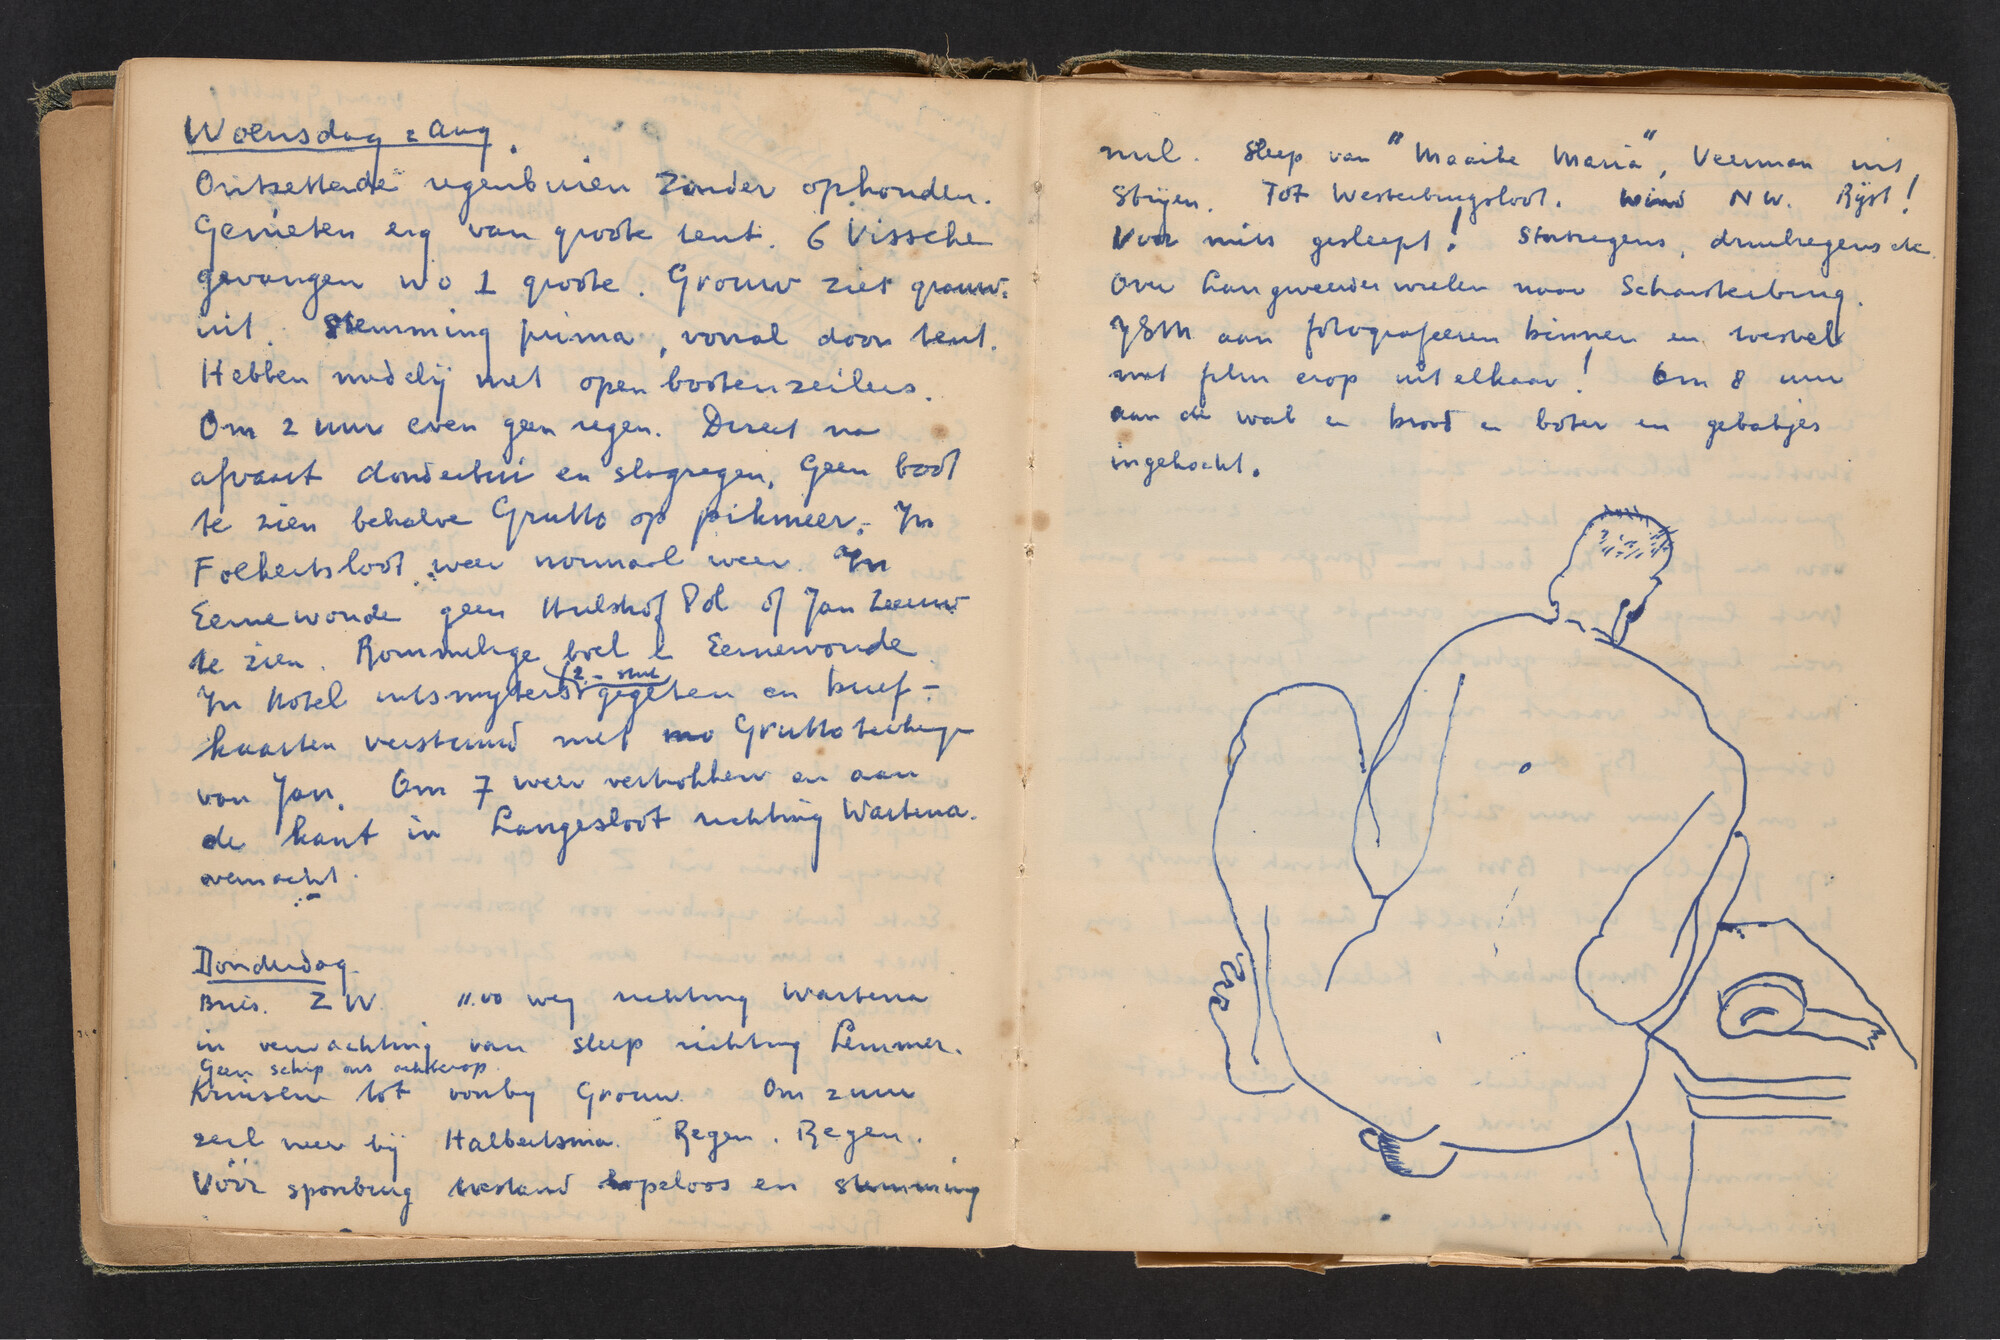 Woensdag 2 Aug.
Ontzettende regenbuien zonder ophouden.
Genieten erg van groote tent. 6 Vissche
gevangen wo 1 groote. Grouw ziet grauw
uit. Stemming prima, vooral door tent.
Hebben medelij met open bootenzeilers.
Om 2 uur even geen regen. Direct na
afvaart donderbui en slagregen. Geen boot
te zien behalve Grutto op pikmeer. In
Foekertsloot weer normaal weer. In
Eernewoude geen Hulshof Pol of Jan Zeeuw
te zien. Rommelige boel Eernewoude.
(2 - stuk
In Hotel uitsmijters gegeten en brief-
kaarten verstuurd met Grutto teekeningen
van Jan. Om 7 weer vertrokken en aan
de kant in Langesloot richting Wartena.
overnacht.
Donderdag
Bries. ZW. 11.00 weg richting Wartena
in verwachting van sleep richting Lemmer.
Geen schip ons achterop.
Kruisen tot voorby Grouw. Om 2 uur
zeil neer bij Halbertsma. Regen. Regen.
Vóór spoorbrug toestand hopeloos en stemming
nul. Sleep van "Maaike Maria", Veerman uit
Strijen. Tot Westerbrugsloot. Wind NW. Rijst!
Voor niets gesleept! Stortregens, druilregens etc.
Over Langweerder wielen naar Scharsterbrug.
aan fotografeeren binnen en toestel
met film erop uit elkaar! Om 8 uur
aan de wal en brood en boter en gebakjes
ingekocht.